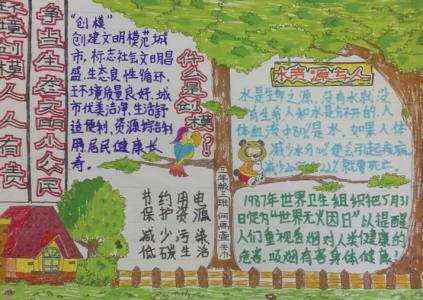 环境创模人人有责
争当生态文明小公民
什么是创模?!
"创模"
创建文明模范城
市，标志社会文明昌
盛，生态良性循环、
环境质量良好、城
市优美洁净、生活舒
适便利、资源综合利
用居民健康长
寿。
节约用电
保护资源
减少污染
低碳生活
三年级二班
水资源与人
水是生命之源，没有水就没
有生命人和水是分不开的，人
体血液中80%是水，如果人体
减少水
1987年世界卫生组织把5月31
日定为"世界无火因日"以提醒
人们重视吸烟对人类健康的
危害，吸烟有害身体健康！